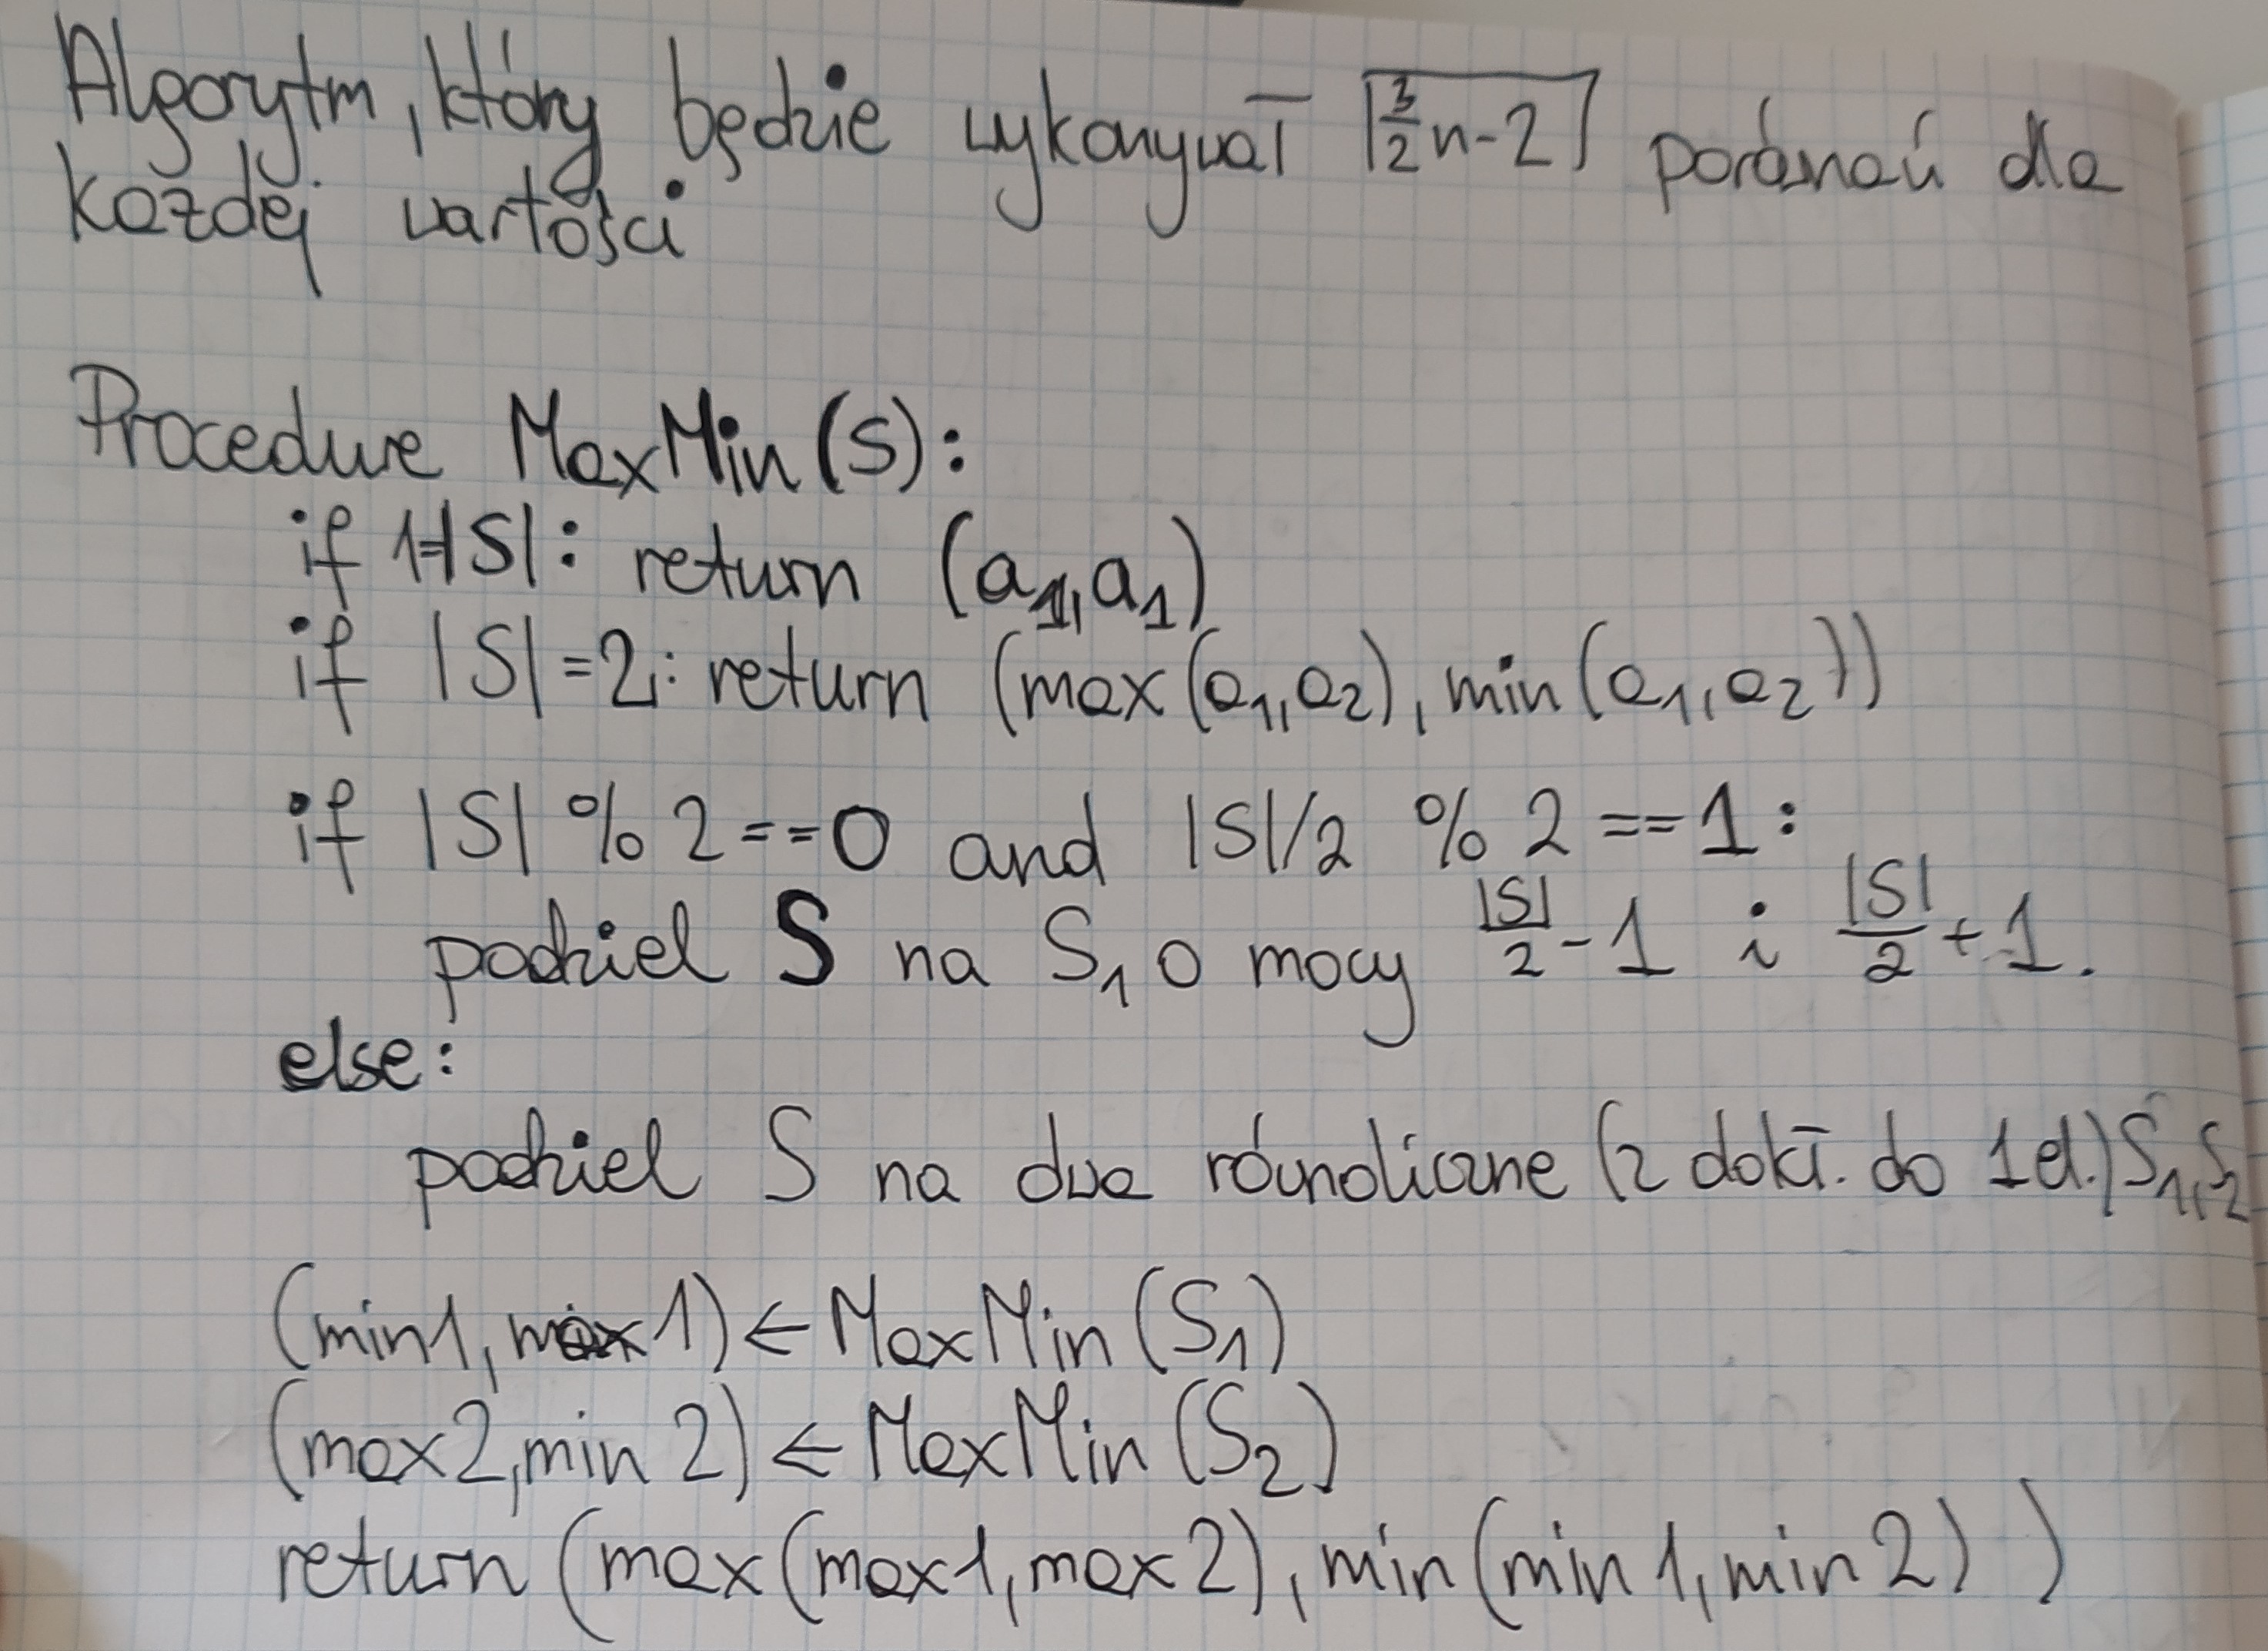 Algorytm, który będzie wykonywał ⌈3/2 n-2⌉ porównań dla
każdej wartości
Procedure MaxMin(S):
if 1=|S|: return (a₁, a₁)
if |S|=2: return (max(a₁,a₂), min(a₁,a₂))
if |S| % 2 == 0 and |S|/2 % 2 == 1:
podziel S na S₁ o mocy |S|/2 - 1 i |S|/2 + 1.
else:
podziel S na dwa równoliczne (z dokł. do 1 el.) S₁, S₂
(min1, max1) ← MaxMin(S₁)
(max2, min2) ← MaxMin(S₂)
return (max(max1, max2), min(min1, min2))